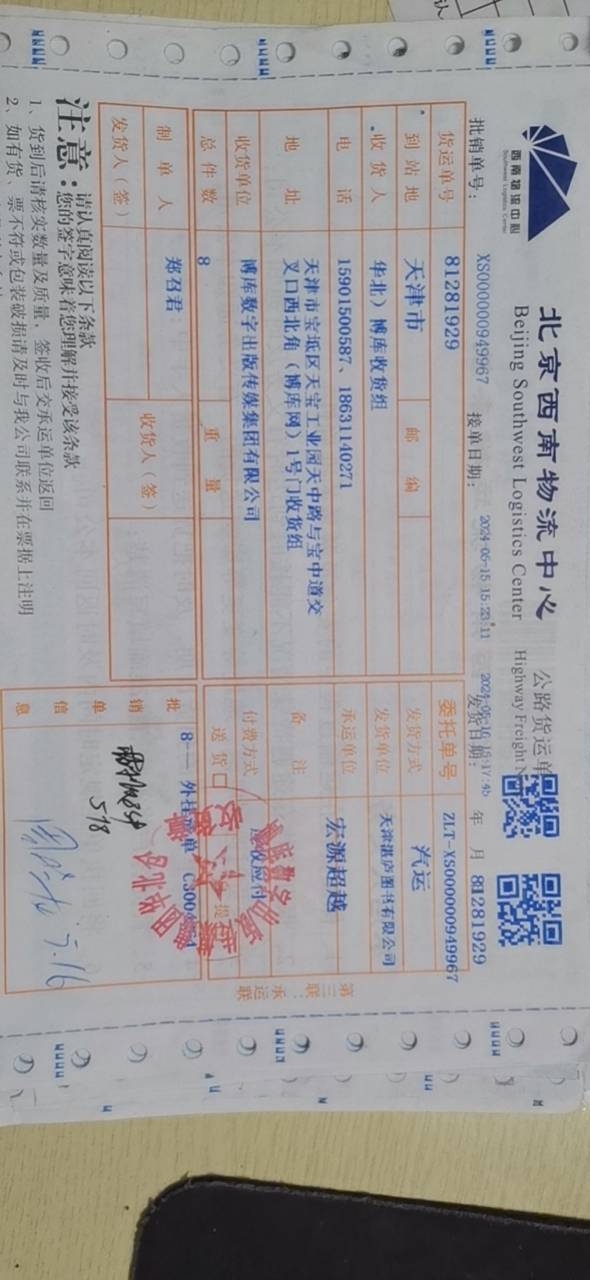 西南物流中心
Southwest Logistics Center
北京西南物流中心
Beijing Southwest Logistics Center
公路货运单
Highway Freight
批销单号： XS000000949967 接单日期： 2024-05-15 15:23:11 发货日期： 年 月 81281929
货运单号 81281929 委托单号 ZLT-XS000000949967
到站地 天津市 邮编 发货方式 汽运
收货人 华北）博库收货组 发货单位 天津湛庐图书有限公司
电话 15901500587、18631140271 承运单位 宏源超越
地址 天津市宝坻区天宝工业园天中路与宝中道交
叉口西北角（博库网）1号门收货组 备注
收货单位 博库数字出版传媒集团有限公司 付费方式 应收应付
总件数 8 重量 送货 提
制单人 郑召君 收货人（签）
发货人（签）
批销单信息 8--- 外挂
518
5.16
第三联：承运联
注意：
请认真阅读以下条款
您的签字意味着您理解并接受该条款
1、货到后请核实数量及质量，签收后交承运单位返回
2、如有货、票不符或包装破损请及时与我公司联系并在票据上注明